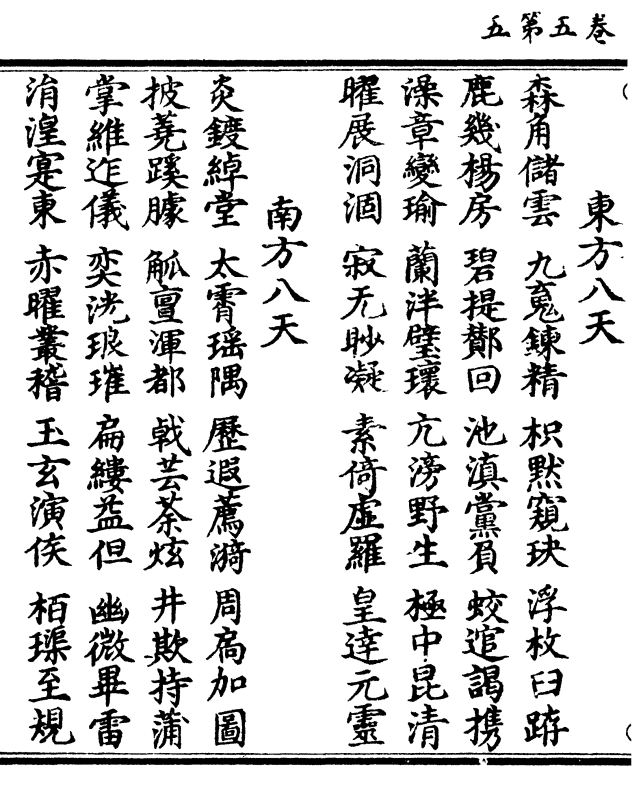 五第五卷
東方八天
森角儲雲 九䰟鍊精 枳黙窺玦 浮枚臼跡
鹿幾楊房 碧提鄼回 池滇黨負 蛟逭謁携
澡章變瑜 蘭泮璧瓌 亢滂野生 極中昆清
曜展洞涸 寂无眇凝 素倚虛羅 皇達元靈
南方八天
炎鍍綽堂 太霄瑶隅 歷遐薦漪 周扃加圖
披蕘蹊臄 觚亶渾都 戟芸荼炫 井欺持蒲
掌維迮儀 奕洸琅璀 扁縷益但 幽微畢雷
涓湟寔東 赤曜叢稽 玉玄演俟 栢璖至規